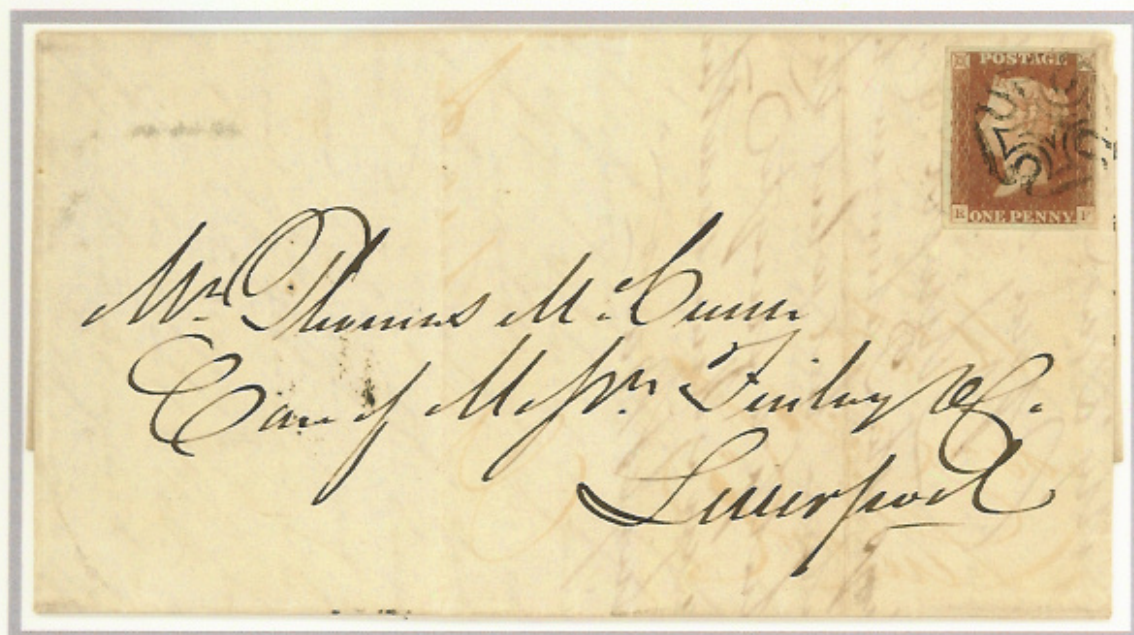 POSTAGE
ONE PENNY
Mr. Thomas Mc
Care of Messrs. Finlay & Co.
Liverpool